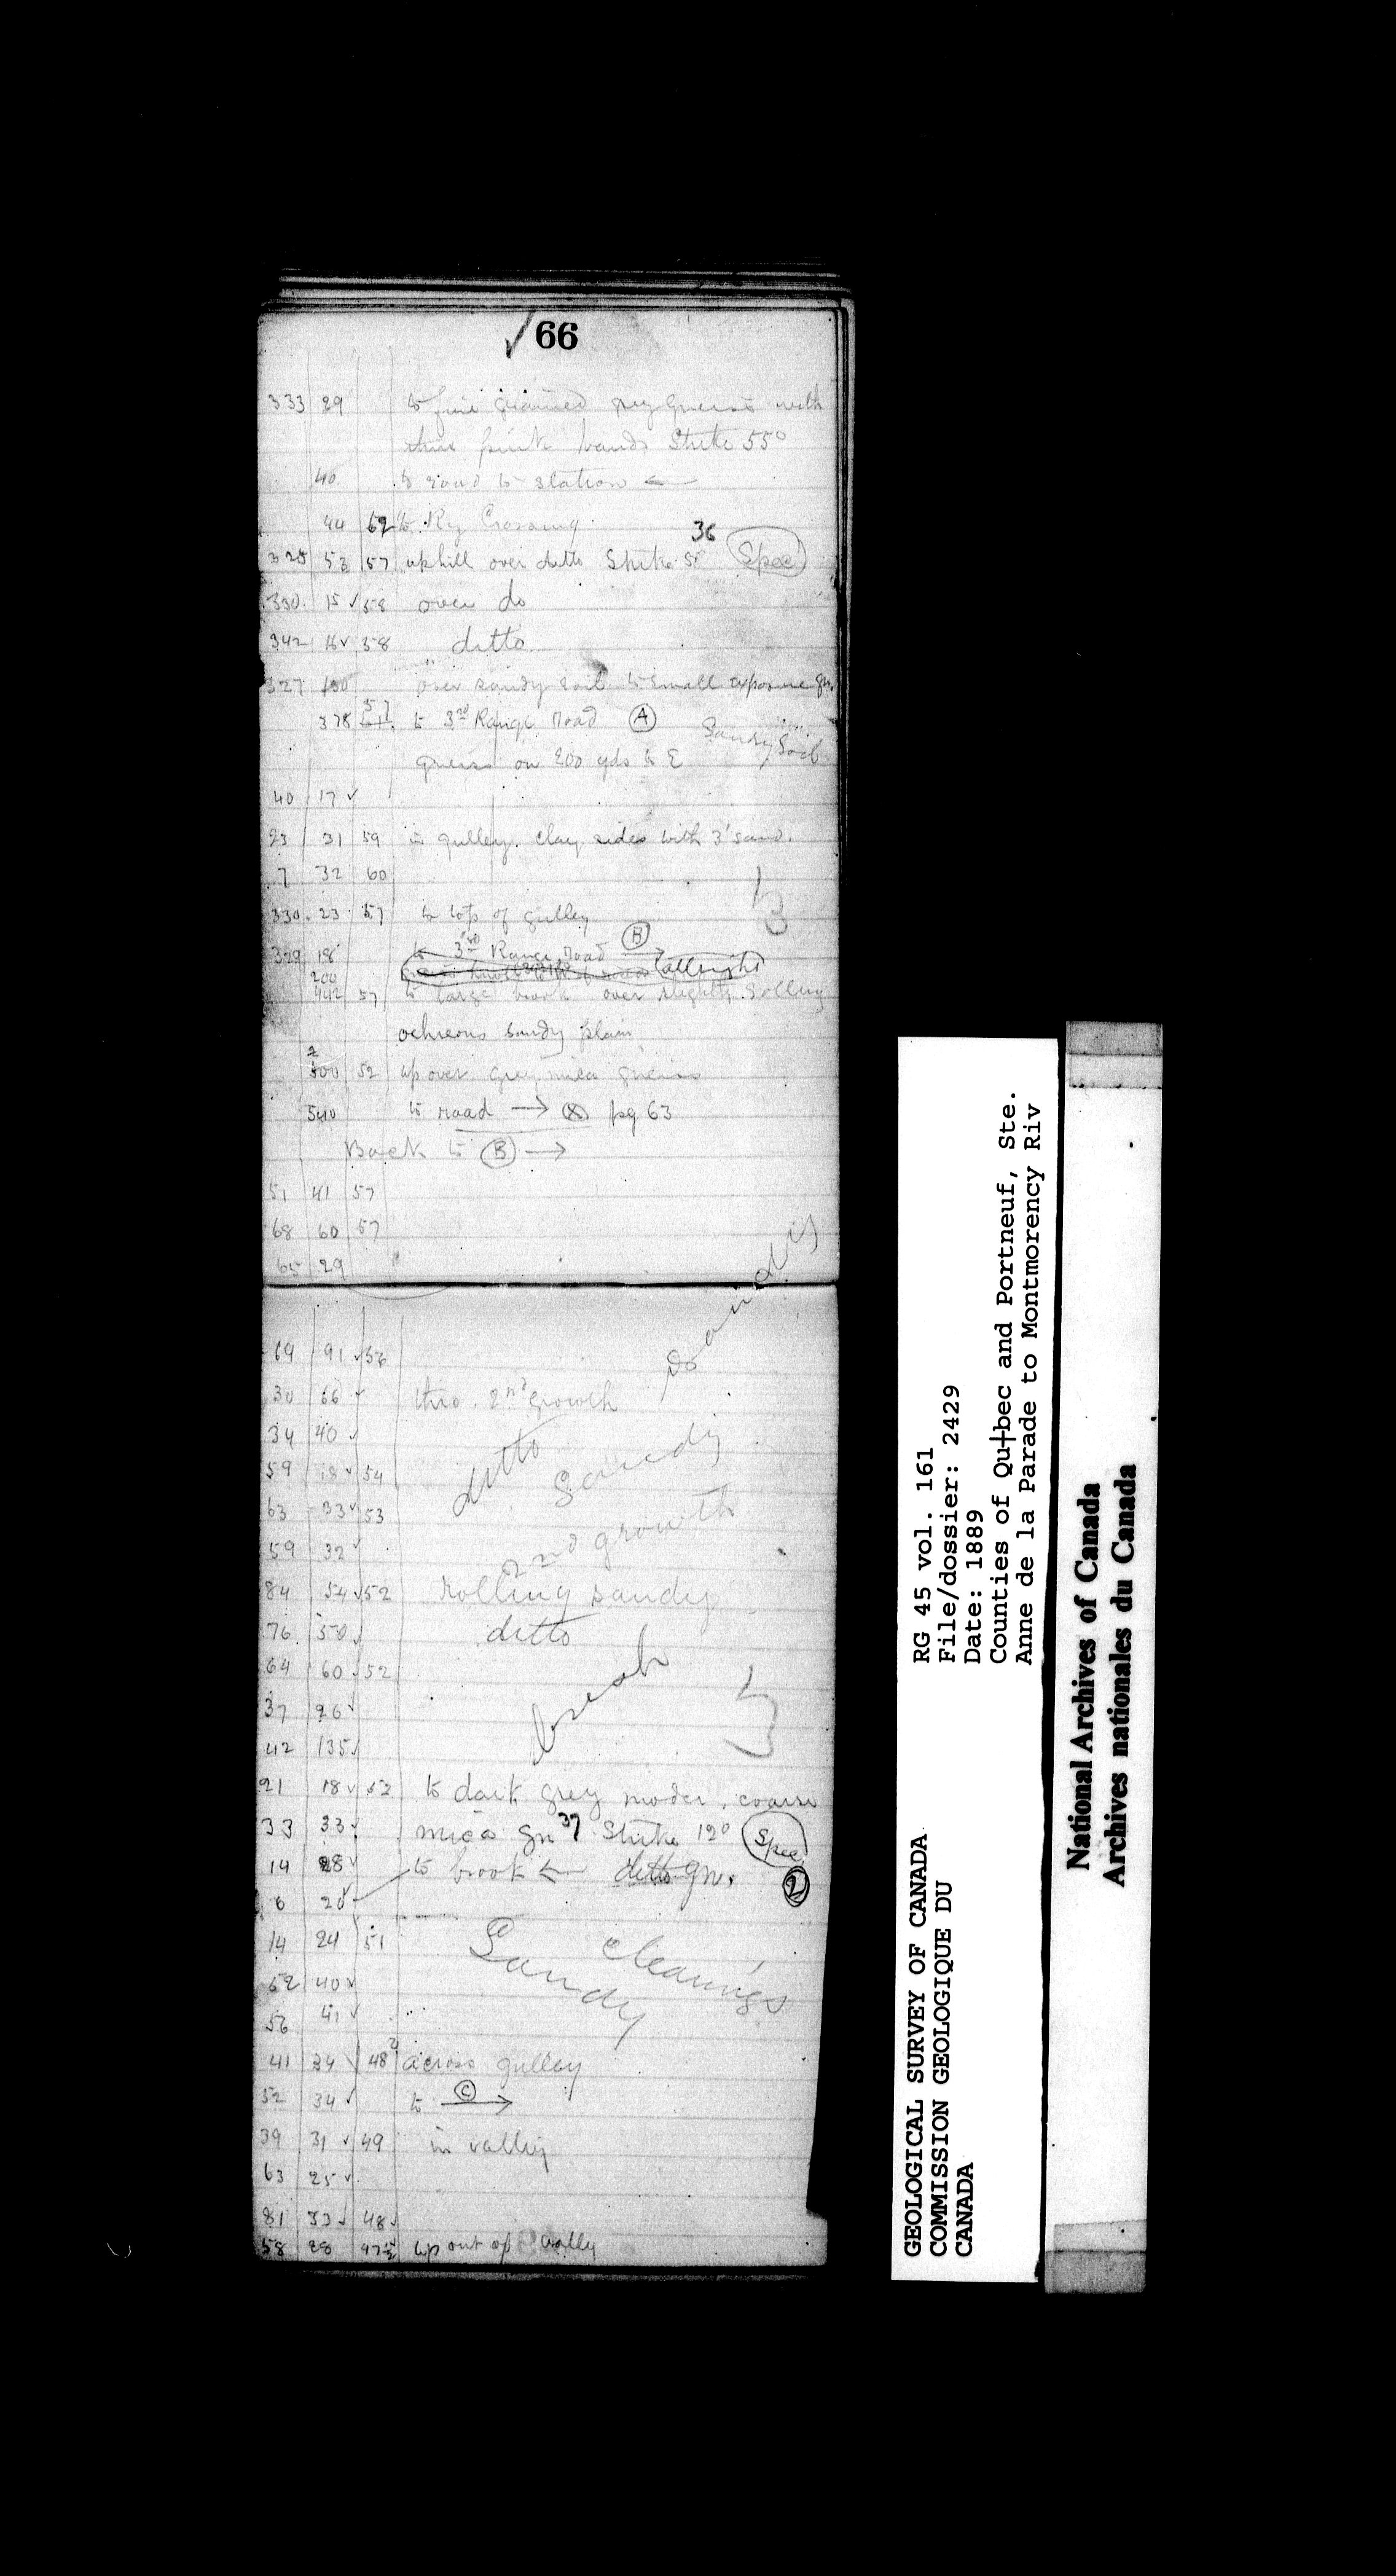 66
333 29 to fine grained grey gneiss with
pink bands Strike 55°
40 to road to station ←
44 62 to Ry Crossing
36
325 53 57 uphill over ditto Strike 50° Spec
330 15 ✓ 58 over do
342 16 ✓ 58 ditto
327 100 over sandy soil to small exposure gn.
378 57 to 3rd Range road A
Sandy Soil
gneiss on 200 yds to E
40 17 ✓
23 31 59 in gulley. clay sides with 3' sand.
7 32 60
330 23 57 to top of gulley
329 18 to 3rd Range road B →
200 allright
442 57 to large brook over slightly rolling
ochreous sandy plain
500 52 up over grey mica gneiss
540 to road → ⊗ pg 63
Back to B →
51 41 57
68 60 57
65 29
Sandy
69 91 ✓ 56
30 66 ✓ thro. 2nd growth
34 40 ✓ ditto
59 18 ✓ 54 Sandy
63 33 ✓ 53
59 32 ✓ 2nd growth
84 54 ✓ 52 rolling sandy
76 50 ✓ ditto
64 60 ✓ 52
37 26 ✓
42 135 ✓
21 18 ✓ 52 to dark grey moder. coarse
33 33 ✓ mica gn 37 Strike 120 Spec
14 28 ✓ to brook ← ditto gn. 2
6 20 ✓
14 24 51 Sandy clearings
62 40 ✓
56 41 ✓
41 34 ✓ 48 across gulley
52 34 ✓ to C →
39 31 ✓ 49 in valley
63 25 ✓
81 33 ✓ 48 ✓
58 28 47½ up out of vally
GEOLOGICAL SURVEY OF CANADA
COMMISSION GEOLOGIQUE DU
CANADA
RG 45 vol. 161
File/dossier: 2429
Date: 1889
Counties of Qu┼bec and Portneuf, Ste.
Anne de la Parade to Montmorency Riv
National Archives of Canada
Archives nationales du Canada